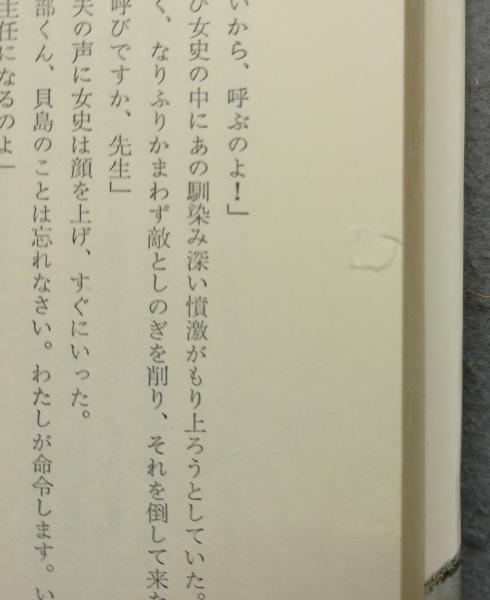 いから、呼ぶのよ！」
び女史の中にあの馴染み深い憤激がもり上ろうとしていた。
く、なりふりかまわず敵としのぎを削り、それを倒して来た
呼びですか、先生」
夫の声に女史は顔を上げ、すぐにいった。
部くん、貝島のことは忘れなさい。わたしが命令します。い
主任になるのよ」